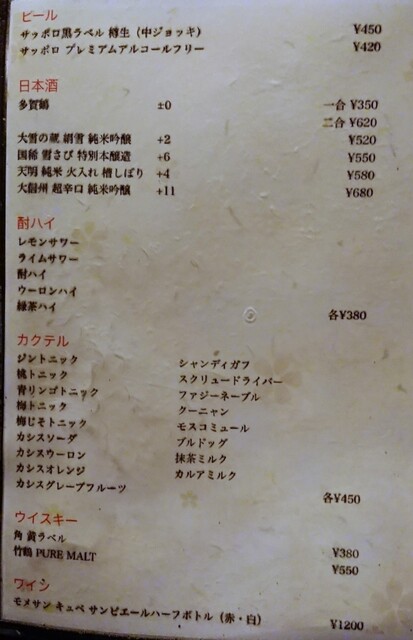 ビール
サッポロ黒ラベル 樽生（中ジョッキ） ¥450
サッポロ プレミアムアルコールフリー ¥420
日本酒
多賀鶴 ±0 一合 ¥350
二合 ¥620
大雪の蔵 絹雪 純米吟醸 +2 ¥520
国稀 雪さび 特別本醸造 +6 ¥550
天明 純米 火入れ 槽しぼり +4 ¥580
大信州 超辛口 純米吟醸 +11 ¥680
酎ハイ
レモンサワー
ライムサワー
酎ハイ
ウーロンハイ
緑茶ハイ 各¥380
カクテル
ジントニック シャンディガフ
桃トニック スクリュードライバー
青リンゴトニック ファジーネーブル
梅トニック クーニャン
梅じそトニック モスコミュール
カシスソーダ ブルドッグ
カシスウーロン 抹茶ミルク
カシスオレンジ カルアミルク
カシスグレープフルーツ 各¥450
ウイスキー
角 黄ラベル ¥380
竹鶴 PURE MALT ¥550
ワイン
モメサン キュベ サンピエールハーフボトル（赤・白） ¥1200